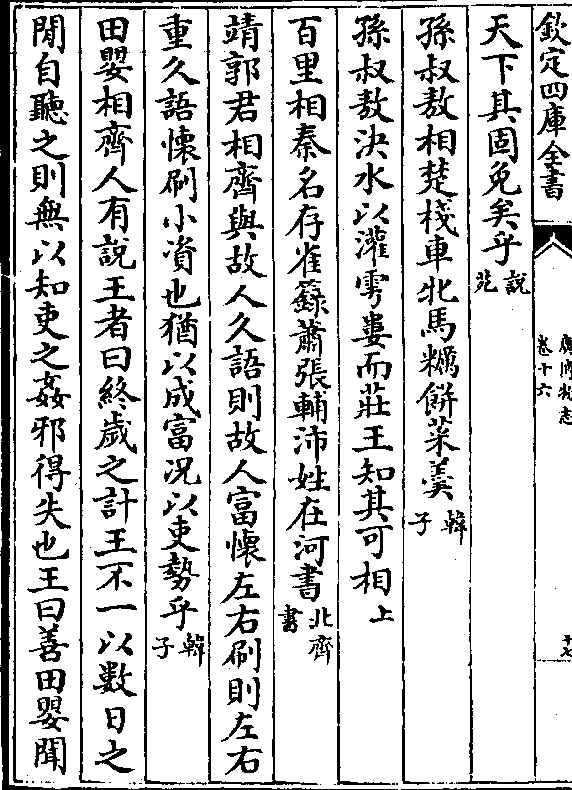 欽定四庫全書
廣博物志
卷十六
十七
天下其固免矣乎說苑
孫叔敖相楚棧車牝馬糲餅菜羹韓子
孫叔敖決水以灌雩婁而莊王知其可相上
百里相秦名存雀籙蕭張輔沛姓在河書北齊書
靖郭君相齊與故人久語則故人富懷左右刷則左右
重久語懷刷小資也猶以成富况以吏勢乎韓子
田嬰相齊人有說王者曰終歲之計王不一以數日之
閒自聽之則無以知吏之姦邪得失也王曰善田嬰聞